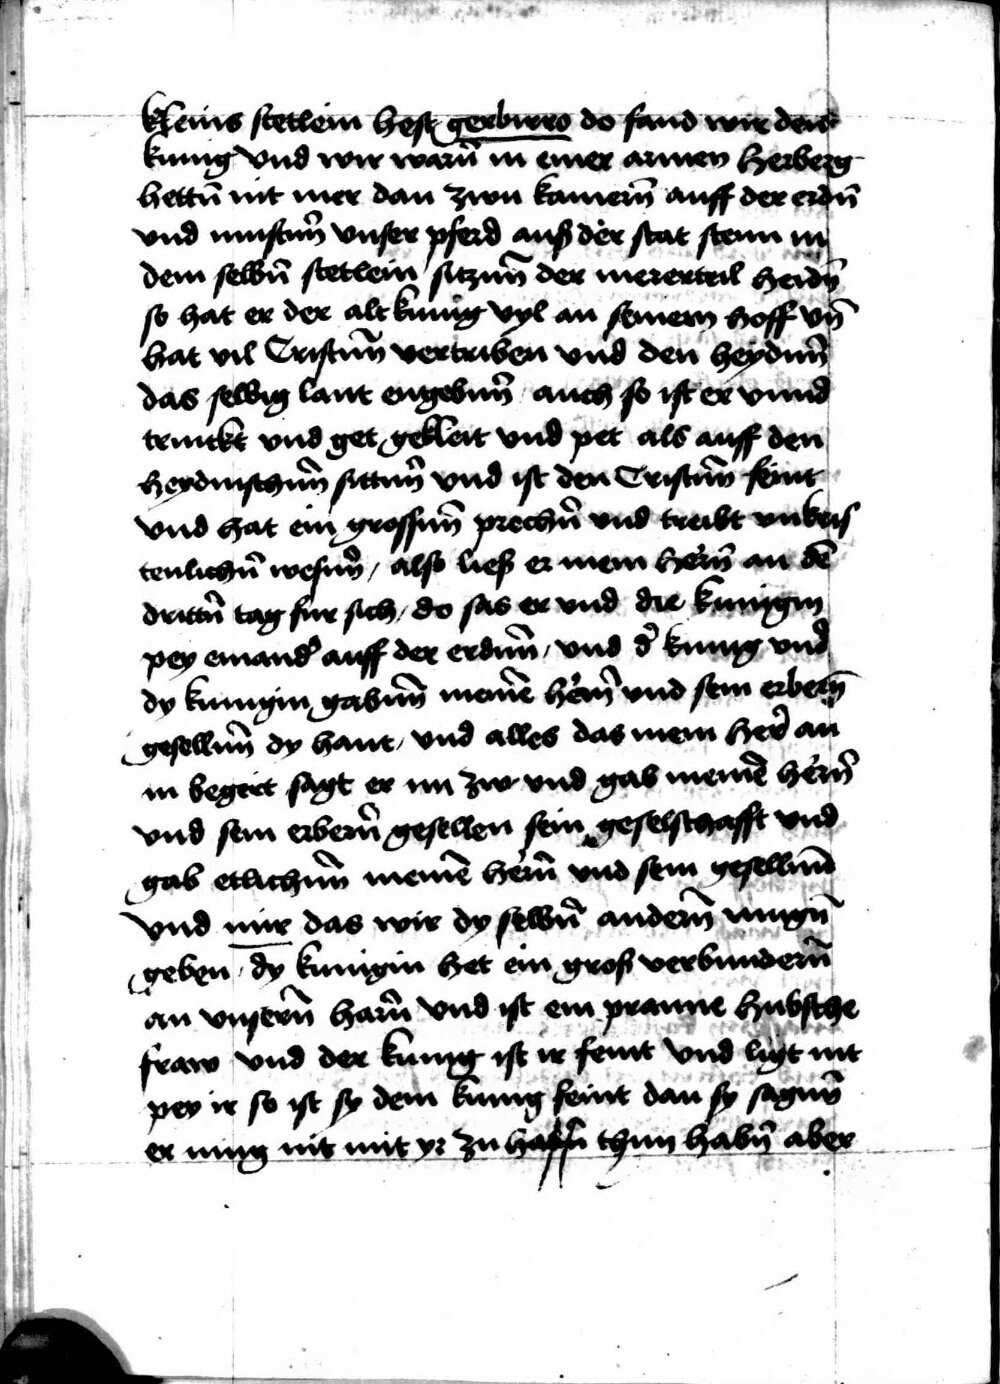 kleins stetlein hest gerbirro do fand wir den
kunig vnd wir warn̄ in einer armen herberg
hettn̄ nit mer dan zwu kamern̄ auff der erdn̄
vnd mustun̄ vnser pferd auß der stat stenn in
dem selbn̄ stetlein sitzun̄ der mererteil heidn̄
so hat er der alt kunig vyl an seinem hoff vn̄
hat vil Cristun̄ vertriben vnd den heydnn̄
das selbig lant engebnn̄ auch so ist er vnnd
trinckt vnd get gekleit vnd pet als auff den
heydnischnn̄ sittnn̄ vnd ist den Cristnn̄ feint
vnd hat ein grossnn̄ prechn̄ vnd treibt vnkris
tenlichn̄ wesnn̄ / also ließ er mein hern̄ an dē
drittn̄ tag fur sich / do sas er vnd die kunigin
pey einand' auff der erdnn̄ / vnd d' kunig vnd
dy kunigin gabnn̄ meinē hern̄ vnd sein erbern̄
gesellnn̄ dy hant / vnd alles das mein her' an
in begert sagt er im zw vnd gab meinē hern̄
vnd sein erbern̄ gesellen sein geselschafft vnd
gab etlichnn̄ meinē hern̄ vnd sein gesellnn̄
vnd mir das wir dy selbn̄ andern̄ mugn̄
geben / dy kunigin het ein groß verbundern̄
an vnsern̄ harn̄ vnd ist ein praune hubsche
fraw vnd der kunig ist ir feint vnd ligt nit
pey ir so ist sy dem kunig feint dan sy sagnn̄
er mug nit mit yr zu thun habn̄ aber